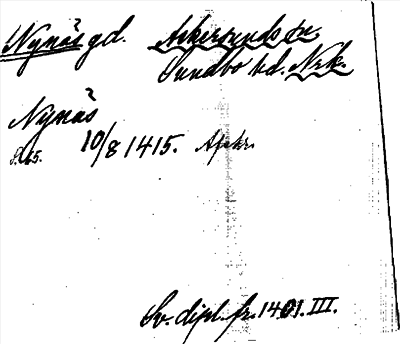 Nynäs gd. Askersunds sn.
Sundbo hd. Nrk.
Nynäs
S. 65. 10/8 1415. Afskr.
Sv. dipl. fr. 1401. III.